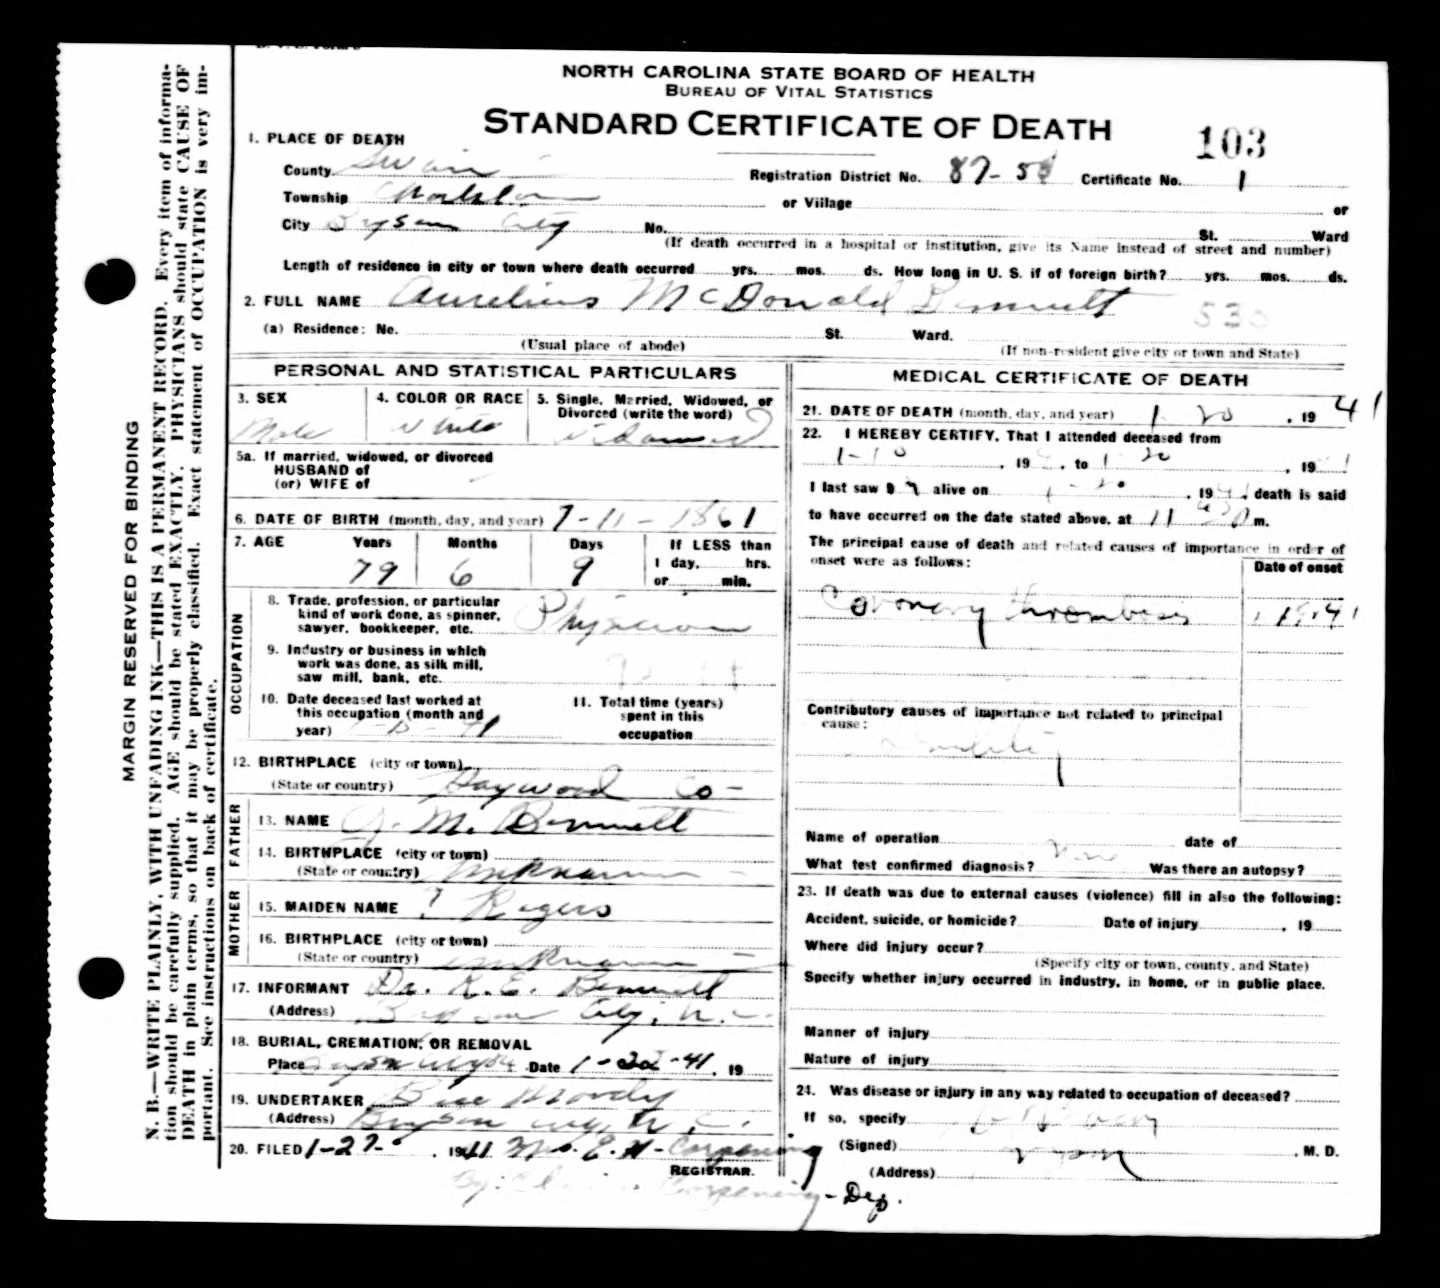 NORTH CAROLINA STATE BOARD OF HEALTH
BUREAU OF VITAL STATISTICS
STANDARD CERTIFICATE OF DEATH
103
1. PLACE OF DEATH
County Swain
Registration District No. 87-50 Certificate No. 1
Township Charleston or Village or
City Bryson City No. St. Ward
(If death occurred in a hospital or institution, give its Name instead of street and number)
Length of residence in city or town where death occurred yrs. mos. ds. How long in U. S. if of foreign birth? yrs. mos. ds.
2. FULL NAME Aurelius McDonald Bennett
(a) Residence: No. St. Ward.
(Usual place of abode) (If non-resident give city or town and State)
PERSONAL AND STATISTICAL PARTICULARS
3. SEX Male
4. COLOR OR RACE White
5. Single, Married, Widowed, or Divorced (write the word) Widowed
5a. If married, widowed, or divorced
HUSBAND of
(or) WIFE of
6. DATE OF BIRTH (month, day, and year) 7-11-1861
7. AGE Years Months Days If LESS than
1 day, hrs.
79 6 9 or min.
OCCUPATION
8. Trade, profession, or particular
kind of work done, as spinner,
sawyer, bookkeeper, etc. Physician
9. Industry or business in which
work was done, as silk mill,
saw mill, bank, etc.
10. Date deceased last worked at
this occupation (month and
year)
11. Total time (years)
spent in this
occupation
12. BIRTHPLACE (city or town)
(State or country) Haywood Co-
FATHER
13. NAME J. M. Bennett
14. BIRTHPLACE (city or town)
(State or country) unknown
MOTHER
15. MAIDEN NAME ? Rogers
16. BIRTHPLACE (city or town)
(State or country) unknown
17. INFORMANT Dr. K. E. Bennett
(Address) Bryson City, N. C.
18. BURIAL, CREMATION, OR REMOVAL
Place Bryson City Date 1-22-41, 19
19. UNDERTAKER Moody
(Address) Bryson City N. C.
20. FILED 1-27-, 1941 Mrs. E. H. Corpening
REGISTRAR.
By: Corpening - Dep.
MEDICAL CERTIFICATE OF DEATH
21. DATE OF DEATH (month, day, and year) 1 20, 1941
22. I HEREBY CERTIFY, That I attended deceased from
, 19 , to 1 20, 19
I last saw h alive on 1-20, 1941, death is said
to have occurred on the date stated above, at 11 m.
The principal cause of death and related causes of importance in order of
onset were as follows:
Date of onset
Coronary thrombosis
Contributory causes of importance not related to principal
cause:
Name of operation date of
What test confirmed diagnosis? Was there an autopsy?
23. If death was due to external causes (violence) fill in also the following:
Accident, suicide, or homicide? Date of injury , 19
Where did injury occur?
(Specify city or town, county, and State)
Specify whether injury occurred in industry, in home, or in public place.
Manner of injury
Nature of injury
24. Was disease or injury in any way related to occupation of deceased?
If so, specify
(Signed) , M. D.
(Address)
MARGIN RESERVED FOR BINDING
N. B.—WRITE PLAINLY, WITH UNFADING INK—THIS IS A PERMANENT RECORD. Every item of informa-
tion should be carefully supplied. AGE should be stated EXACTLY. PHYSICIANS should state CAUSE OF
DEATH in plain terms, so that it may be properly classified. Exact statement of OCCUPATION is very im-
portant. See instructions on back of certificate.